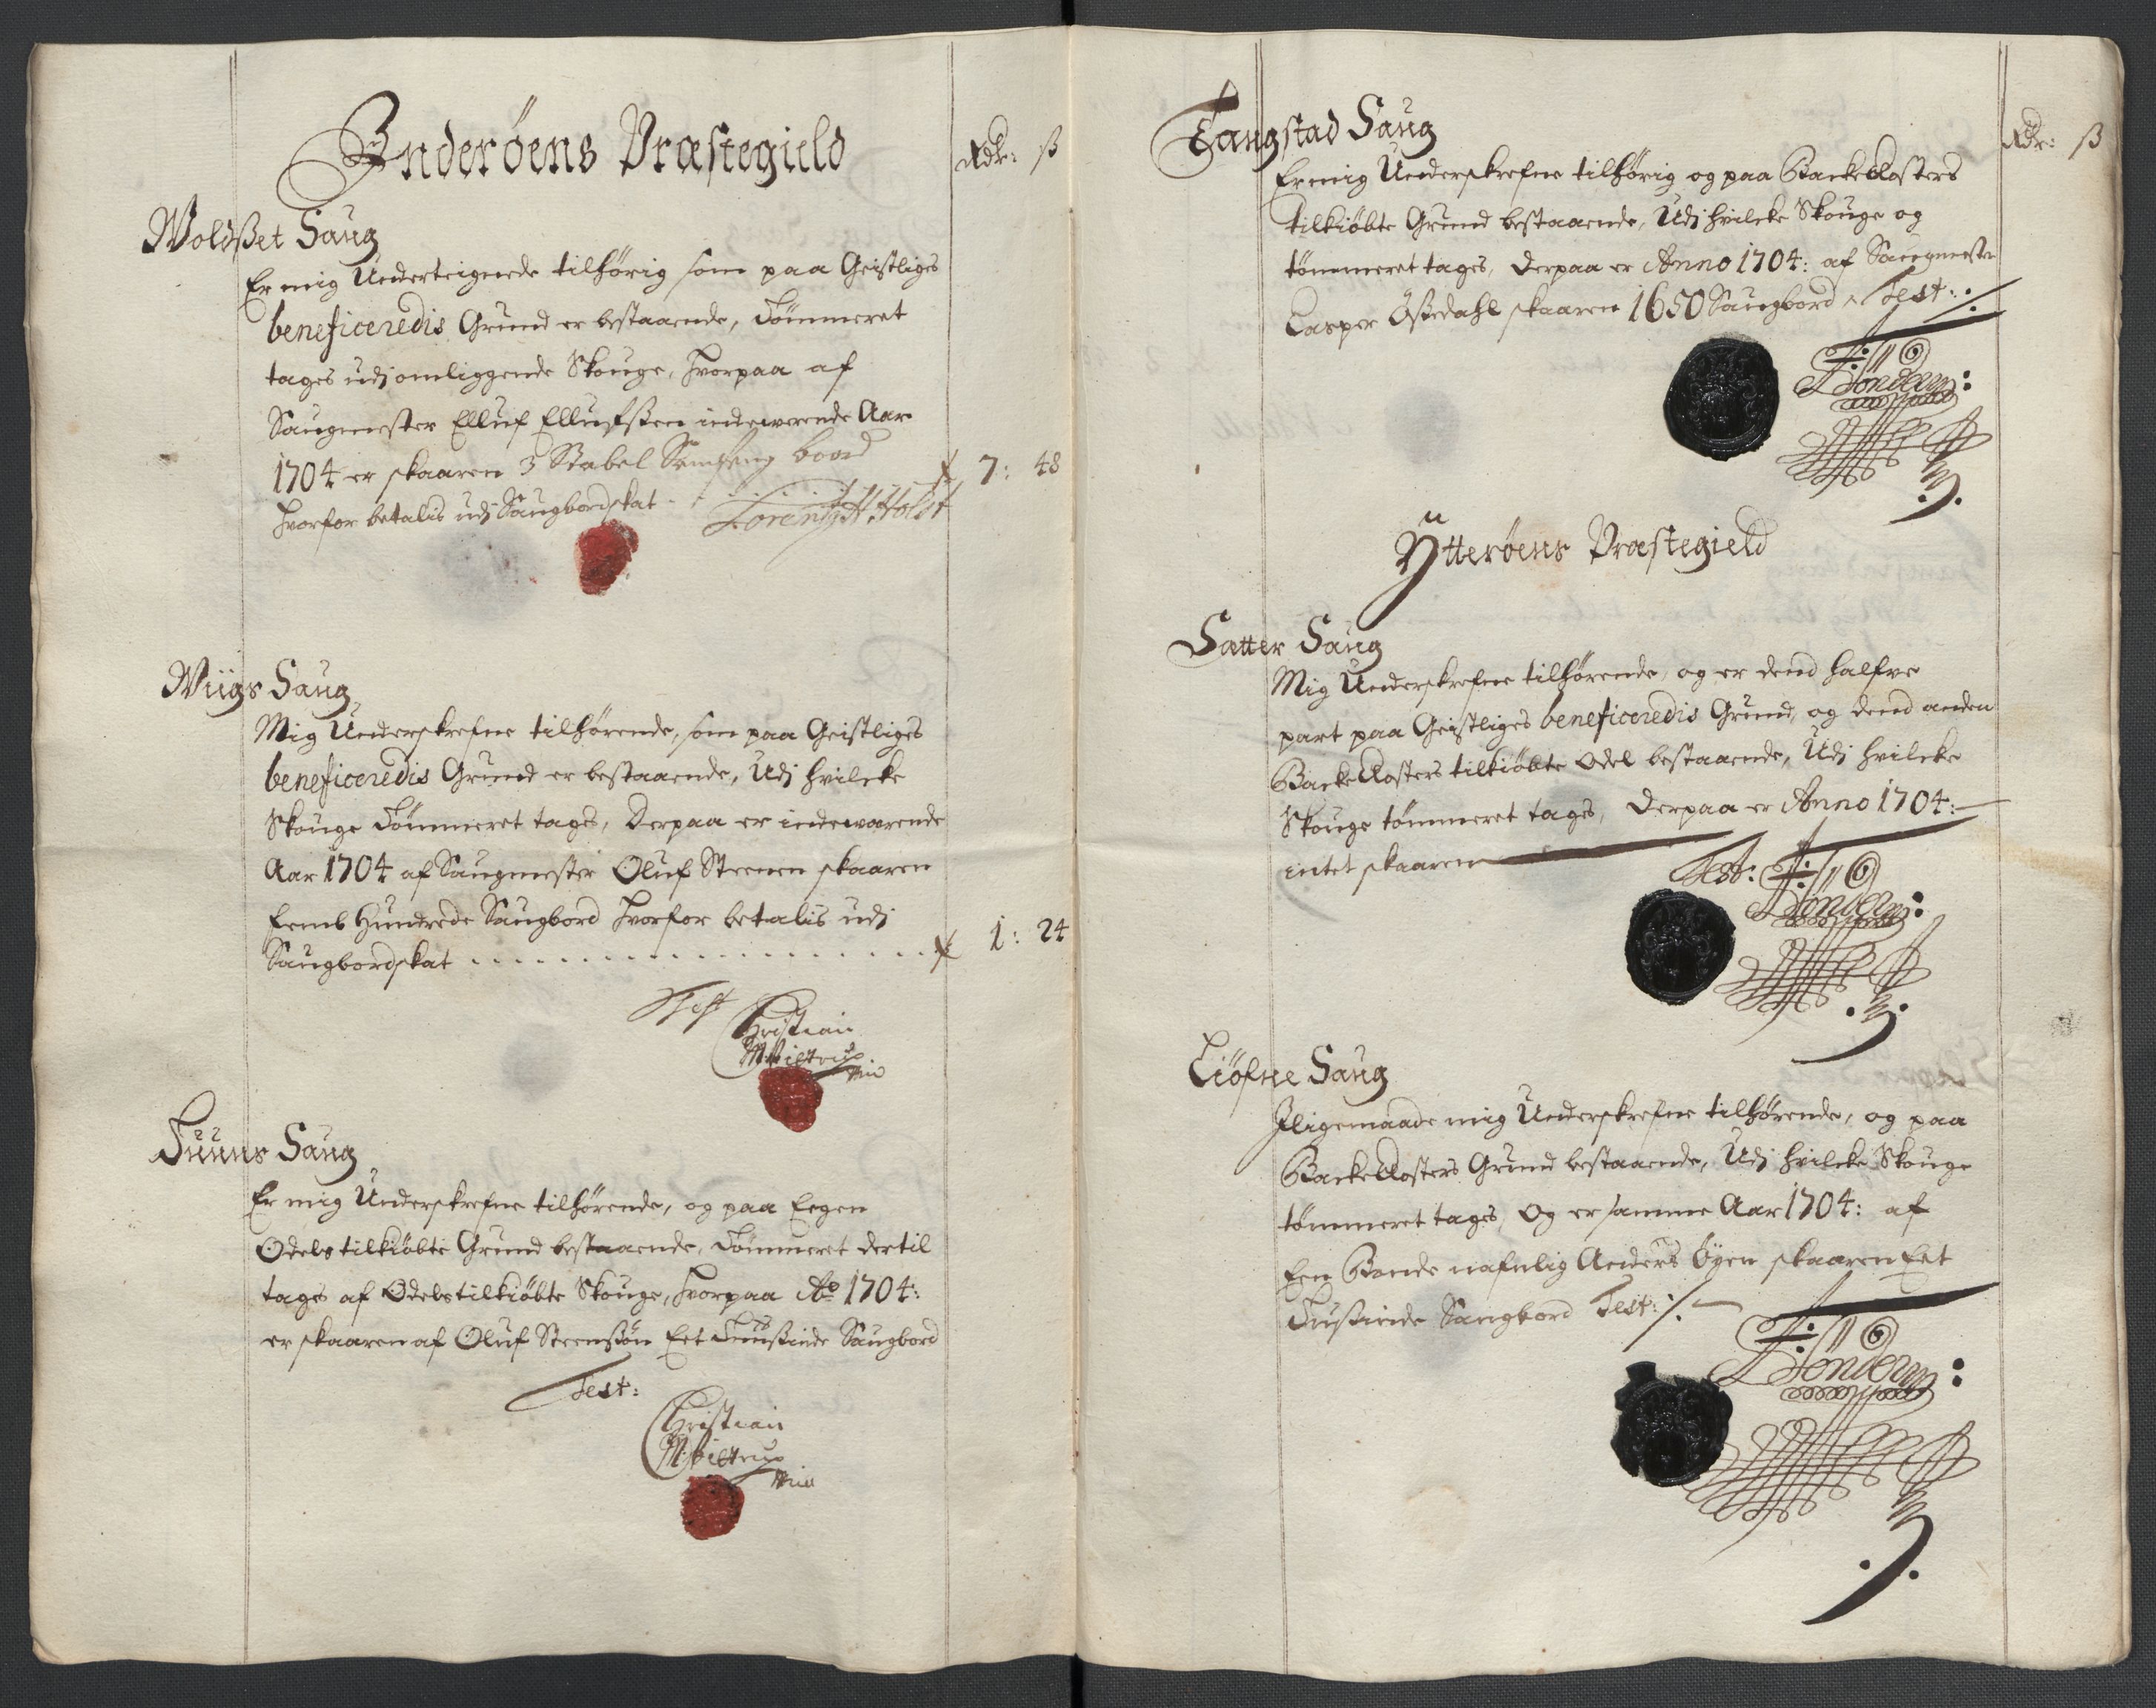 Inderøens Præstegield
Rdr: ß
Woldßet Saug
Er mig Underteignede tilhørig som paa Geistliges
beneficeredis Grund er bestaaende, Tømmeret
tages udj omliggende Skouge, hvorpaa af
Saugmester Elluf Ellufßen indewerende Aar
1704 er skaaren 3 Stabel boord
hvorfor betalis udj Saugbordskat - 7: 48
Lorentz H. Holst
Wiigs Saug
Mig Underskrefne tilhørende, som paa Geistliges
beneficeredis Grund er bestaaende, Udj hvilcke
Skouge Tømmeret tages, Derpaa er indewarende
Aar 1704 af Saugmester Oluf Steenen skaaren
femb Hundrede Saugbord hvorfor betalis udj
Saugbordskat . . . . . . . . . . . . . . . . . . 1: 24
Test
Christian
Suuns Saug
Er mig Underskrefne tilhørende, og paa Eegen
Odels tilkiøbte Grund bestaaende, Tømmeret dertil
tages af Odels tilkiøbte Skouge, hvorpaa Ao 1704:
er skaaren af Oluf Steensßøn Eet Tuußinde Saugbord
Test:
Christian
Rdr: ß
Tangstad Saug
Er mig Underskrefne tilhørig og paa Backe Closters
tilkiøbte Grund bestaaende, Udj hvilcke Skouge og
tømmeret tages, Derpaa er Anno 1704: af Saugmester
Casper Oßedahl skaaren 1650 Saugbord Test:
Tønder:
Ytterøens Præstegield
Sætter Saug
Mig Underskrefne tilhørende, og er dend halfve
part paa Geistliges beneficeredis Grund, og dend anden
Backe Closters tilkiøbte Odel bestaaende, Udj hvilcke
Skouge tømmeret tages, Derpaa er Anno 1704:
intet skaaren
Test:
Tønder:
Liøfne Saug
Iligemaade mig Underskrefne tilhørende, og paa
Backe Closters Grund bestaaende, Udj hvilcke Skouge
tømmeret tages, Og er samme Aar 1704: af
Een Bonde nafnlig Anders Øyen skaaren Eet
Tußinde Saugbord Test:
Tønder: